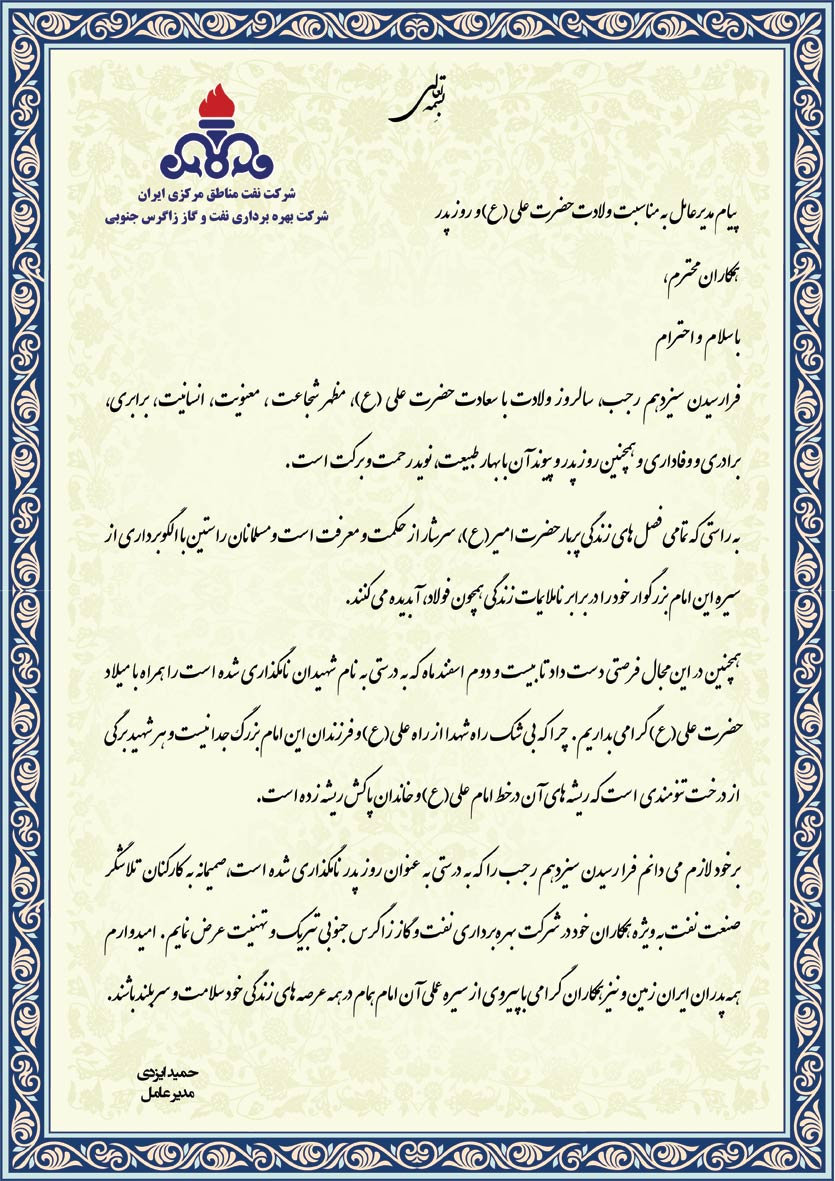 بسمه تعالی
شرکت نفت مناطق مرکزی ایران
شرکت بهره برداری نفت و گاز زاگرس جنوبی
پیام مدیرعامل به مناسبت ولادت حضرت علی (ع) و روز پدر
همکاران محترم،
با سلام و احترام
فرارسیدن سیزدهم رجب، سالروز ولادت با سعادت حضرت علی (ع)، مظهر شجاعت، معنویت، انسانیت، برابری،
برادری و وفاداری و همچنین روز پدر و پیوند آن با بهار طبیعت، نوید رحمت و برکت است.
به راستی که تمامی فصل های زندگی پربار حضرت امیر(ع)، سرشار از حکمت و معرفت است و مسلمانان راستین با الگوبرداری از
سیره این امام بزرگوار خود را در برابر ناملایمات زندگی همچون فولاد، آبدیده می کنند.
همچنین در این مجال فرصتی دست داد تا بیست و دوم اسفند ماه که به درستی به نام شهیدان نامگذاری شده است را همراه با میلاد
حضرت علی(ع) گرامی بداریم. چرا که بی شک راه شهدا از راه علی(ع) و فرزندان این امام بزرگ جدا نیست و هر شهید برگی
از درخت تنومندی است که ریشه های آن در خط امام علی(ع) و خاندان پاکش ریشه زده است.
برخود لازم می دانم فرا رسیدن سیزدهم رجب را که به درستی به عنوان روز پدر نامگذاری شده است، صمیمانه به کارکنان تلاشگر
صنعت نفت به ویژه همکاران خود در شرکت بهره برداری نفت و گاز زاگرس جنوبی تبریک و تهنیت عرض نمایم. امیدوارم
همه پدران ایران زمین و نیز همکاران گرامی با پیروی از سیره عملی آن امام همام در همه عرصه های زندگی خود سلامت و سربلند باشند.
حمید ایزدی
مدیرعامل